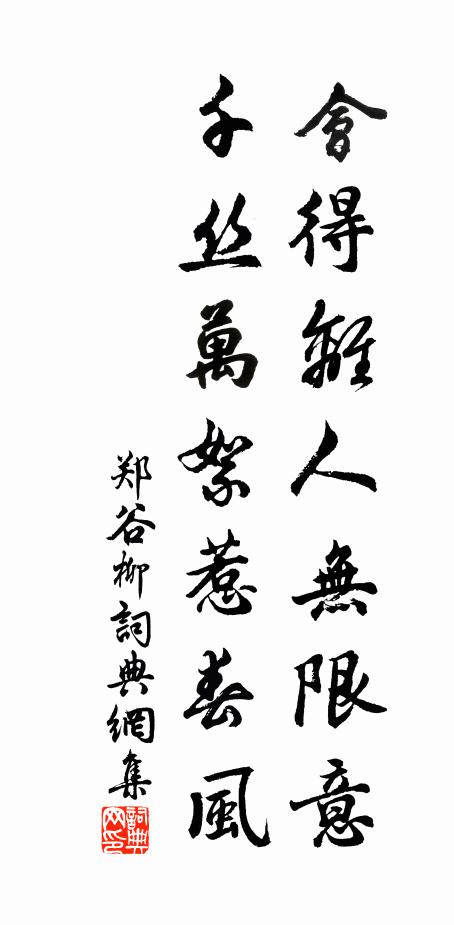 會得離人無限意
千丝萬絮惹春風
郑谷柳詞典網集
詞典网印